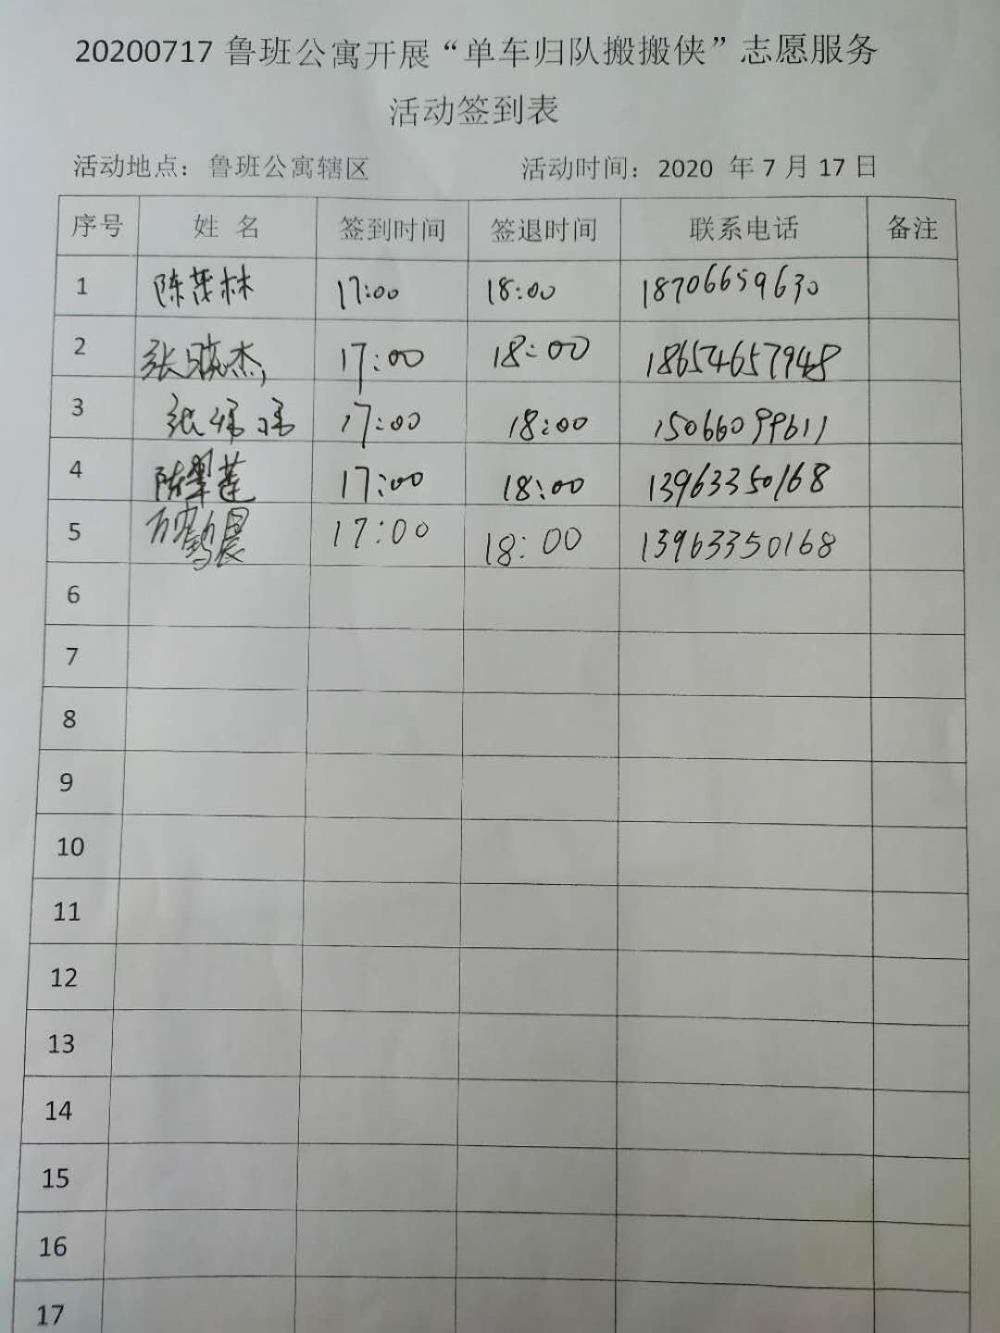 20200717 鲁班公寓开展“单车归队搬搬侠”志愿服务
活动签到表
活动地点：鲁班公寓辖区 活动时间：2020 年 7 月 17 日
序号 姓 名 签到时间 签退时间 联系电话 备注
1 陈茂林 17:00 18:00 18706659630
2 张晓杰 17:00 18:00 18654657948
3 张 17:00 18:00 15066099611
4 陈翠莲 17:00 18:00 13963350168
5 17:00 18:00 13963350168
6
7
8
9
10
11
12
13
14
15
16
17